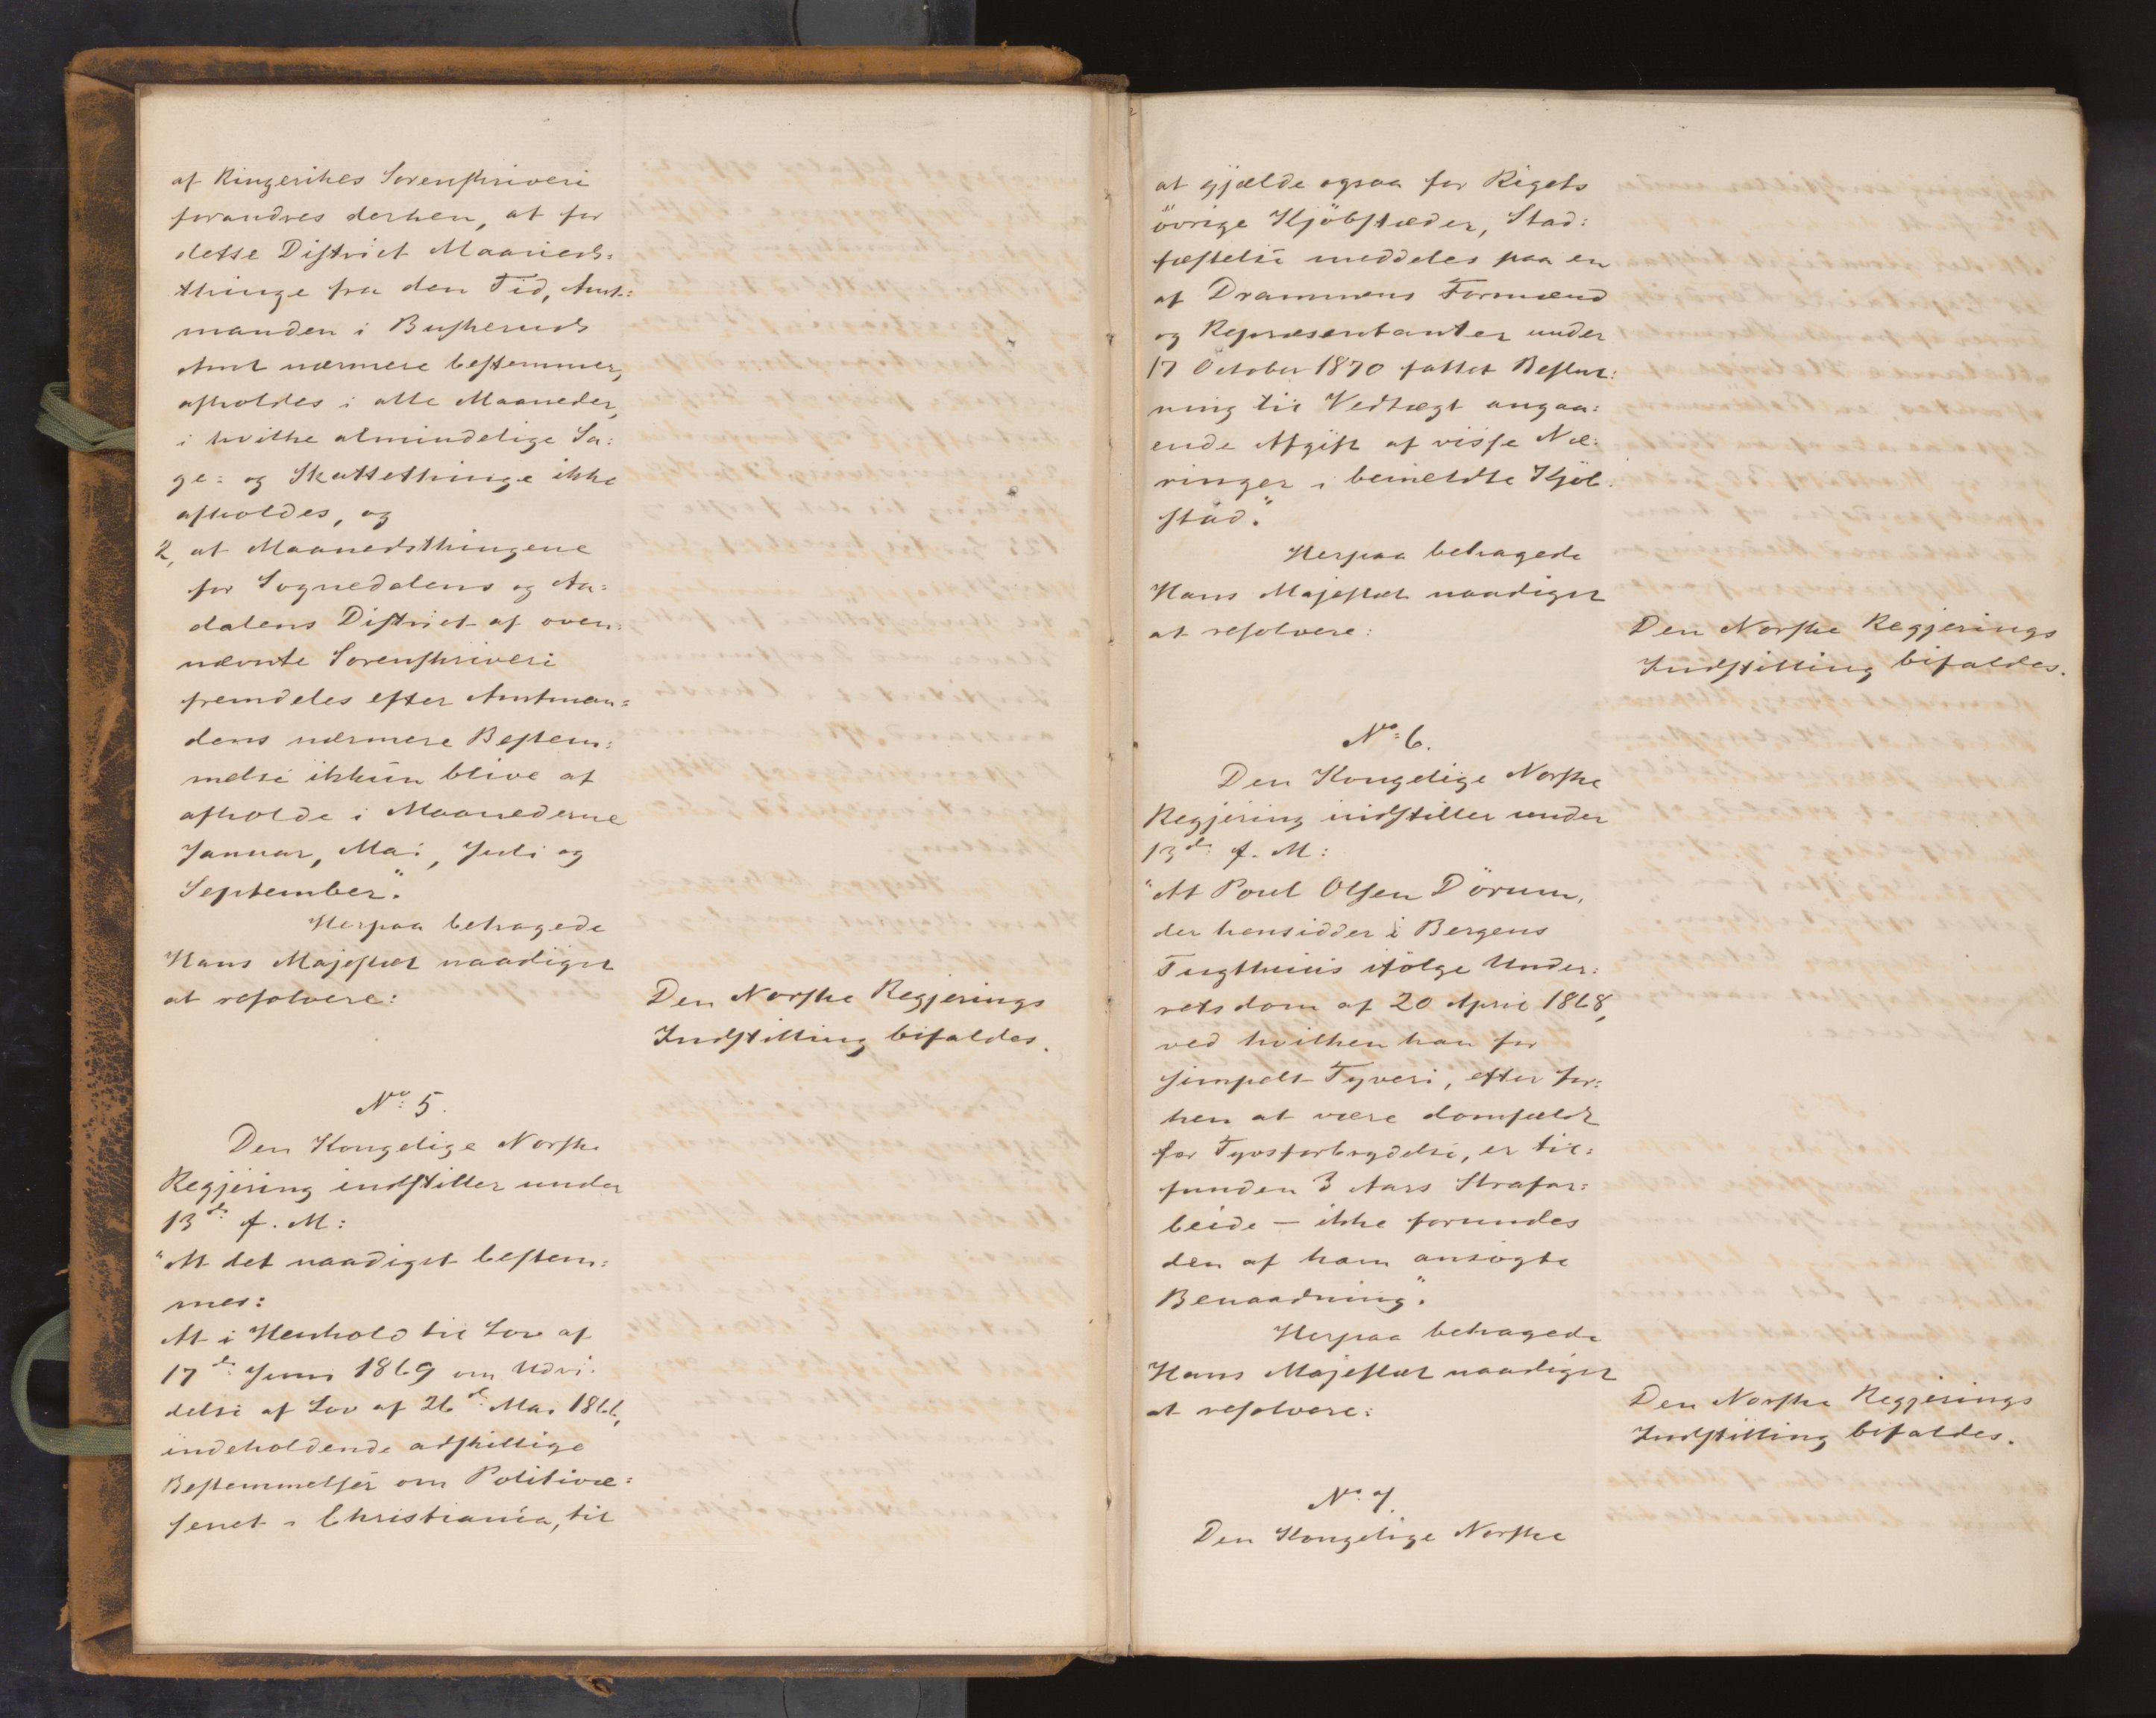 af Ringerikes Sorenskriveri
forandres derhen, at for
dette District Maaneds=
thinge fra den Tid, Amt=
manden i Buskeruds
Amt nærmere bestemmer,
afholdes i alle Maaneder,
i hvilke almindelige Sa=
ge= og Skattethinge ikke
afholdes, og
2, at Maanedsthingene
for Sognedalens og Aa=
dalens District af oven=
nævnte Sorenskriveri
fremdeles efter Amtman=
dens nærmere Bestem=
melse ikkun blive at
afholde i Maanederne
Januar, Mai, Juli og
September".
Herpaa behagede
Hans Majestæt naadigst
at resolvere:
Den Norske Regjerings
Indstilling bifaldes.
No: 5.
Den Kongelige Norske
Regjering indstiller under
13de f. M:
"At det naadigst bestem=
mes:
At i Henhold til Lov af
17de Juni 1869 om Udvi=
delse af Lov af 26de Mai 1866,
indeholdende adskillige
Bestemmelser om Politivæ=
senet i Christiania, til
at gjælde ogsaa for Rigets
övrige Kjöbstæder, Stad=
fæstelse meddeles paa en
af Drammens Formænd
og Repræsentanter under
17 October 1870 fattet Beslut=
ning til Vedtægt angaa=
ende Afgift af visse Næ=
ringer i bemeldte Kjöb=
stad".
Herpaa behagede
Hans Majestæt naadigst
at resolvere:
Den Norske Regjerings
Indstilling bifaldes.
No: 6.
Den Kongelige Norske
Regjering indstiller under
13de f. M:
"At Poul Olsen Dörum,
der hensidder i Bergens
Tugthuus ifölge Under=
retsdom af 20 April 1868,
ved hvilken han for
simpelt Tyveri, efter for=
hen at være domfældt
for Tyvsforbrydelse, er til=
funden 3 Aars Strafar=
beide – ikke forundes
den af ham ansögte
Benaadning".
Herpaa behagede
Hans Majestæt naadigst
at resolvere:
Den Norske Regjerings
Indstilling bifaldes.
No: 7.
Den Kongelige Norske